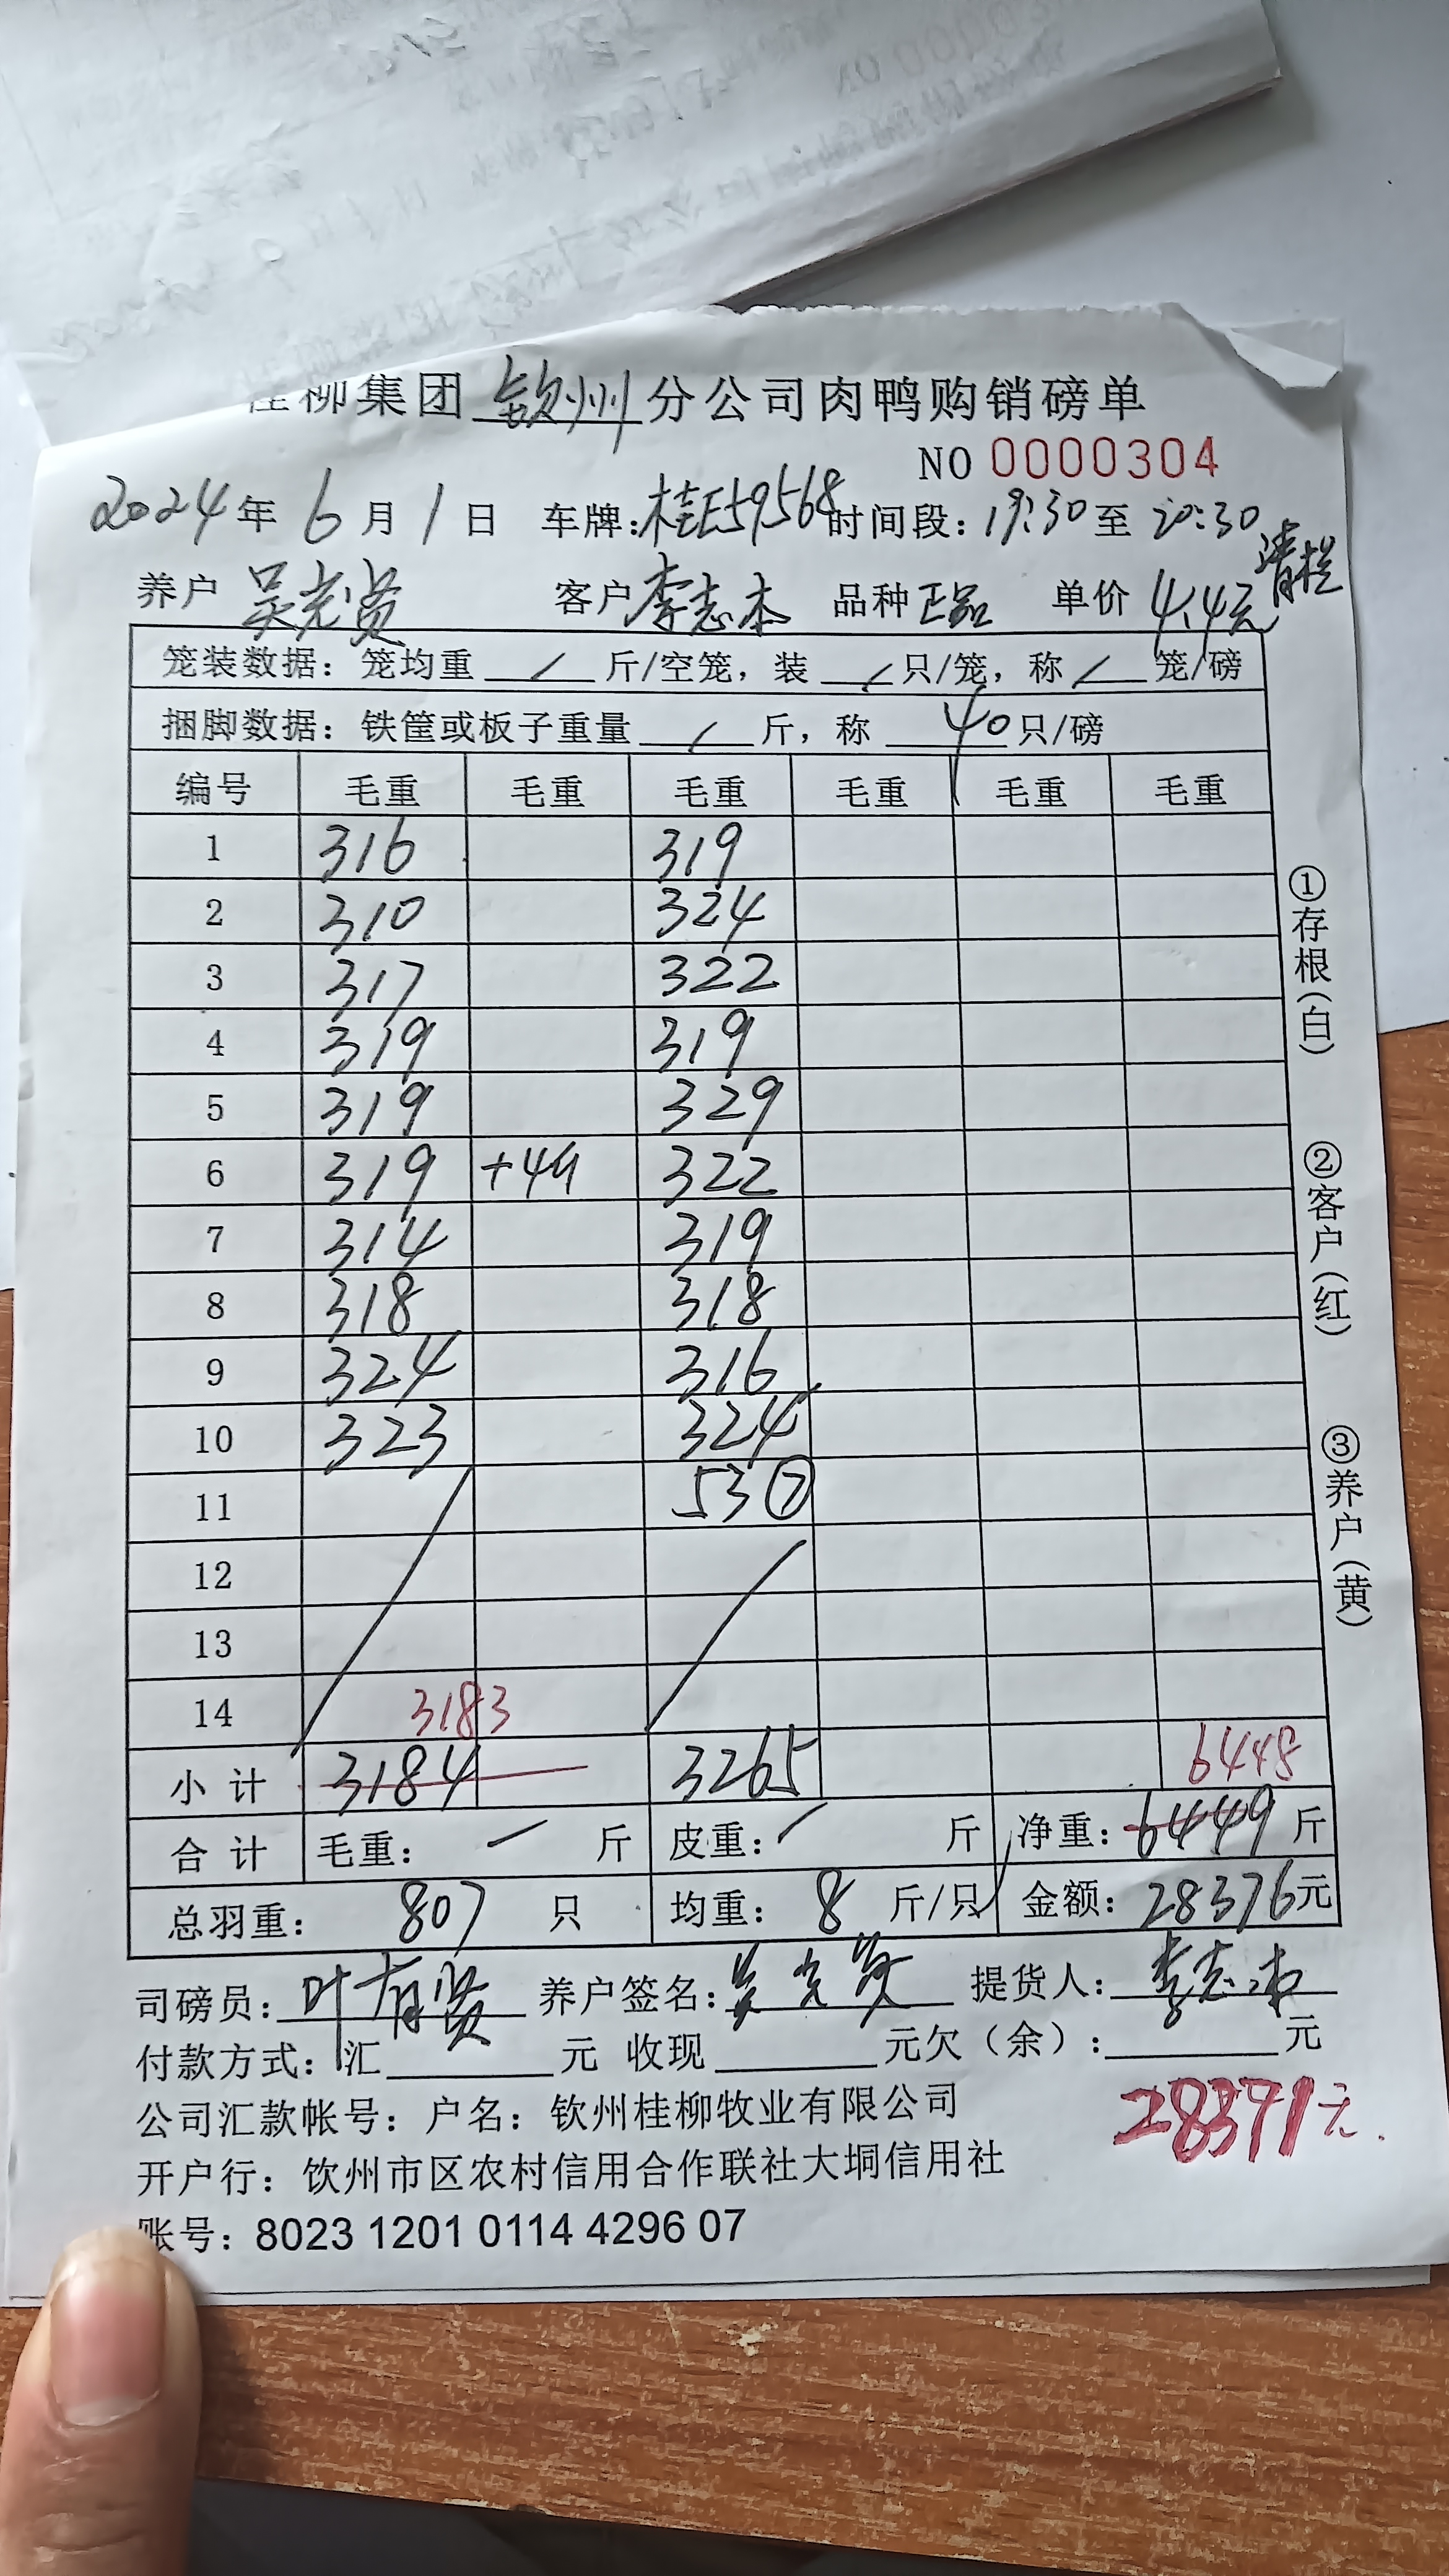 桂柳集团 钦州 分公司肉鸭购销磅单
NO 0000304
2024 年 6 月 1 日 车牌:桂E59568 时间段: 19:30 至 20:30
清栏
养户 吴光贤 客户 李志杰 品种 正品 单价 4.4元
笼装数据: 笼均重 / 斤/空笼, 装 / 只/笼, 称 / 笼/磅
捆脚数据: 铁筐或板子重量 / 斤, 称 40 只/磅
编号 毛重 毛重 毛重 毛重 毛重 毛重
1 316 319
2 310 324
3 317 322
4 319 319
5 319 329
6 319 +4 322
7 314 319
8 318 318
9 324 316
10 323 324
11 53 ⑦
12
13
14 3183
小计 3184 3265 6448
合计 毛重: — 斤 皮重: / 斤 净重: 6449 斤
总羽重: 807 只 均重: 8 斤/只 金额: 28376元
司磅员: 叶有贤 养户签名: 吴光贤 提货人: 李志杰
付款方式: 汇 元 收现 元欠(余): 元
28371元.
公司汇款帐号: 户名: 钦州桂柳牧业有限公司
开户行: 饮州市区农村信用合作联社大垌信用社
账号: 8023 1201 0114 4296 07
①存根(白)
②客户(红)
③养户(黄)